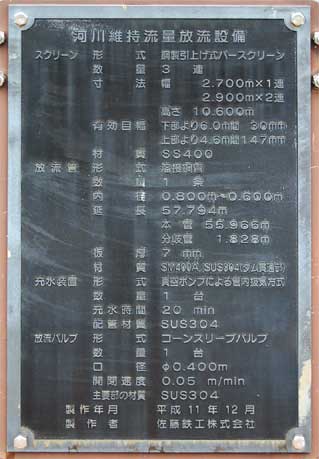 河川維持流量放流設備
スクリーン 形式 鋼製引上げ式バースクリーン
数量 3 連
寸法 幅 2.700m×1連
2.900m×2連
高さ 10.600m
有効目幅 下部より6.0m間 30mm
上部より4.6m間 147mm
材質 SS400
放流管 形式 溶接鋼管
数量 1 条
内径 0.800m~0.600m
延長 57.794m
本管 55.966m
分岐管 1.828m
板厚 7 mm
材質 SM400A, SUS304(ダム貫通部)
充水装置 形式 真空ポンプによる管内吸気方式
数量 1 台
充水時間 20 min
配管材質 SUS304
放流バルブ 形式 コーンスリーブバルブ
数量 1 台
口径 φ0.400m
開閉速度 0.05 m/min
主要部の材質 SUS304
製作年月 平成11年12月
製作者 佐藤鉄工株式会社